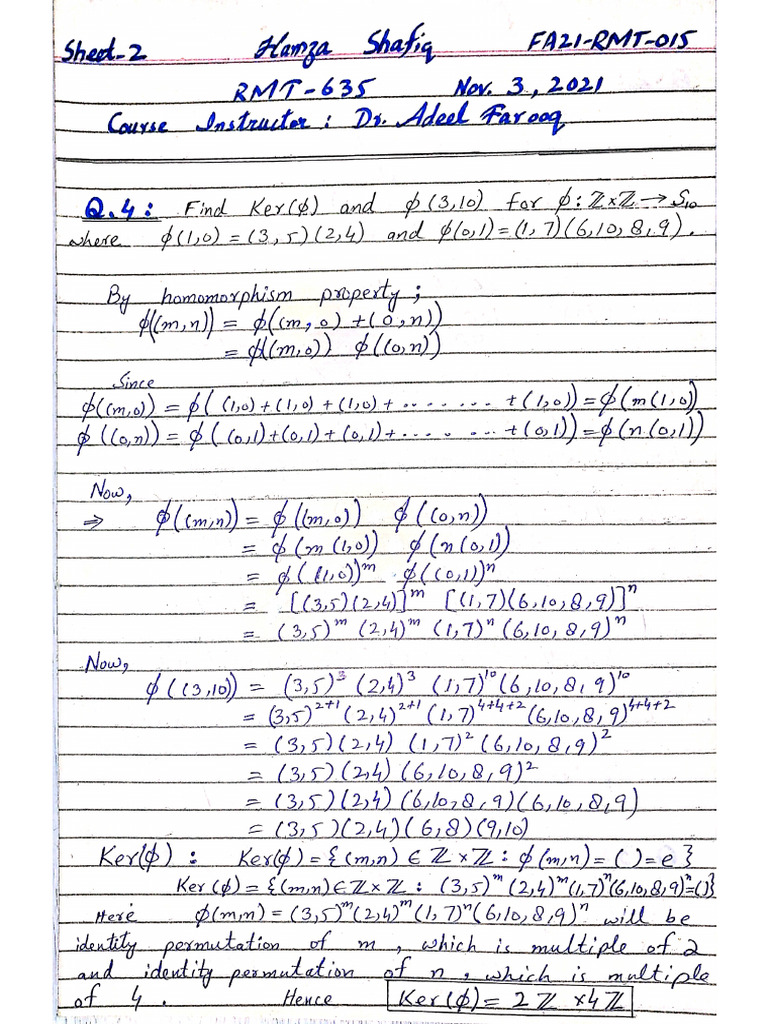 Sheet-2 Hamza Shafiq FA21-RMT-015
RMT-635 Nov. 3, 2021
Course Instructor : Dr. Adeel Farooq
Q.4: Find Ker(ϕ) and ϕ(3,10) for ϕ: ℤ×ℤ → S₁₀
where ϕ(1,0) = (3,5)(2,4) and ϕ(0,1) = (1,7)(6,10,8,9).
By homomorphism property;
ϕ((m,n)) = ϕ((m,0) + (0,n))
= ϕ((m,0)) ϕ((0,n))
Since
ϕ((m,0)) = ϕ((1,0)+(1,0)+(1,0)+.......+(1,0)) = ϕ(m(1,0))
ϕ((0,n)) = ϕ((0,1)+(0,1)+(0,1)+.......+(0,1)) = ϕ(n(0,1))
Now,
⇒ ϕ((m,n)) = ϕ((m,0)) ϕ((0,n))
= ϕ(m(1,0)) ϕ(n(0,1))
= ϕ((1,0))ᵐ ϕ((0,1))ⁿ
= [(3,5)(2,4)]ᵐ [(1,7)(6,10,8,9)]ⁿ
= (3,5)ᵐ (2,4)ᵐ (1,7)ⁿ (6,10,8,9)ⁿ
Now,
ϕ((3,10)) = (3,5)³ (2,4)³ (1,7)¹⁰ (6,10,8,9)¹⁰
= (3,5)²⁺¹ (2,4)²⁺¹ (1,7)⁴⁺⁴⁺² (6,10,8,9)⁴⁺⁴⁺²
= (3,5)(2,4) (1,7)² (6,10,8,9)²
= (3,5)(2,4)(6,10,8,9)²
= (3,5)(2,4)(6,10,8,9)(6,10,8,9)
= (3,5)(2,4)(6,8)(9,10)
Ker(ϕ) : Ker(ϕ) = {(m,n) ∈ ℤ×ℤ : ϕ(m,n) = ( ) = e}
Ker(ϕ) = {(m,n) ∈ ℤ×ℤ : (3,5)ᵐ (2,4)ᵐ (1,7)ⁿ (6,10,8,9)ⁿ = ( )}
Here ϕ(m,n) = (3,5)ᵐ (2,4)ᵐ (1,7)ⁿ (6,10,8,9)ⁿ will be
identity permutation of m, which is multiple of 2
and identity permutation of n, which is multiple
of 4. Hence Ker(ϕ) = 2ℤ × 4ℤ